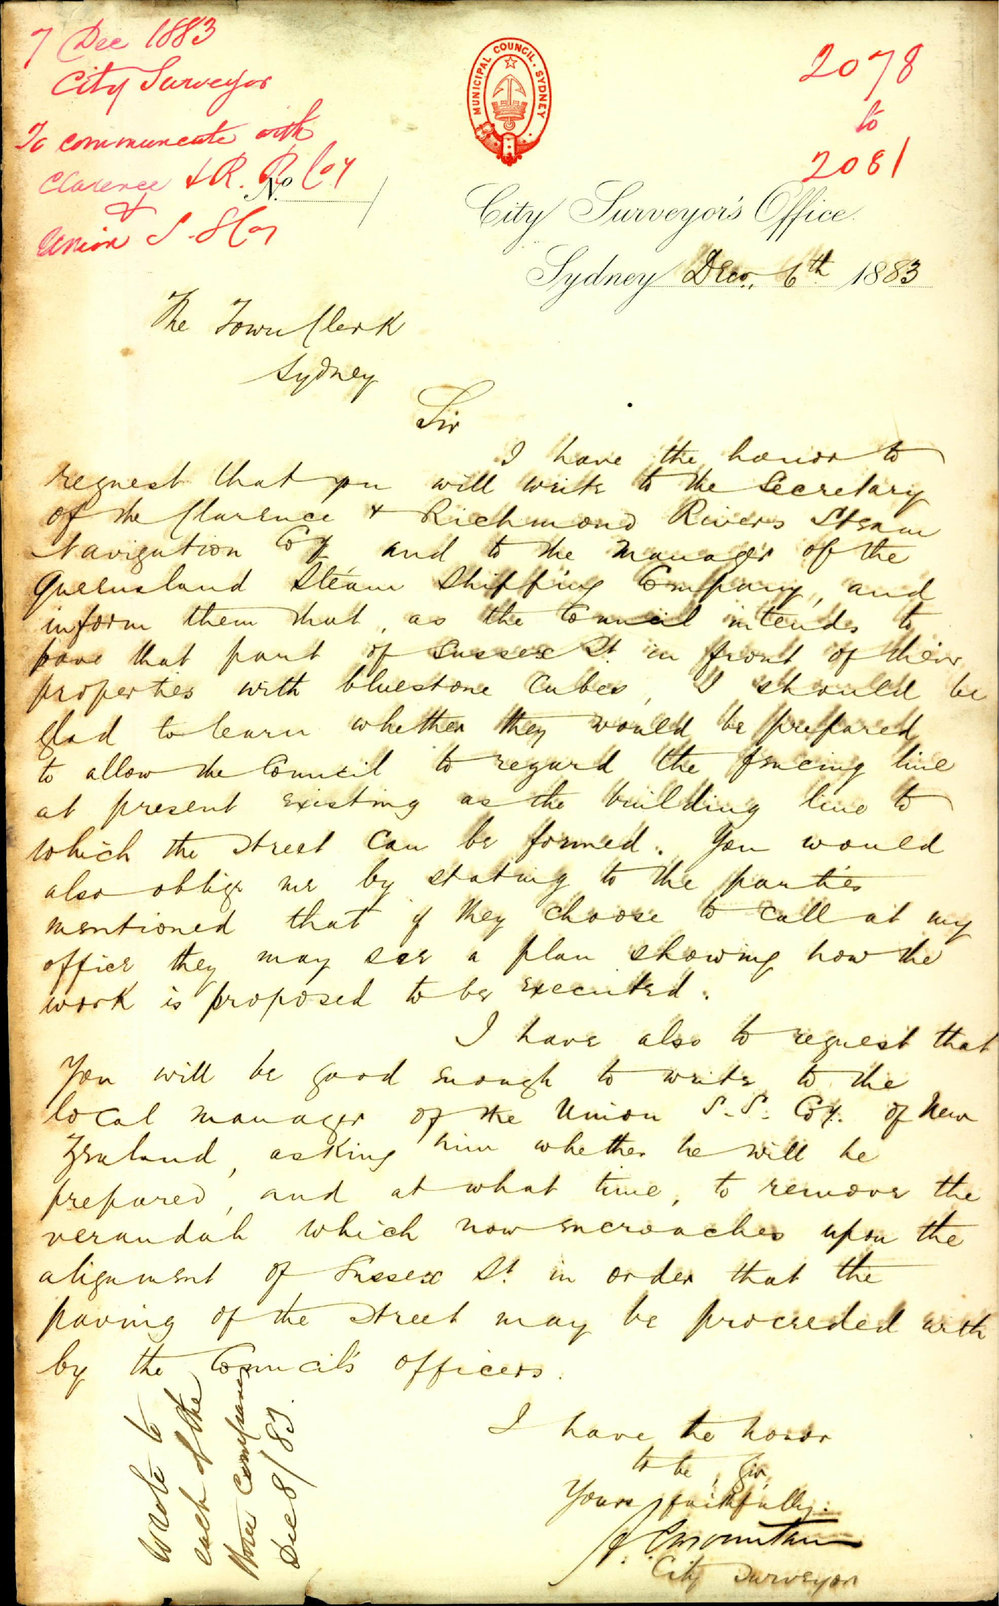 7 Dec 1883
City Surveyor
To communicate with
Clarence & R. R. Coy
&
Union S. S Coy
MUNICIPAL COUNCIL. SYDNEY.
2078
to
2081
No
City Surveyor's Office.
Sydney Decr. 6th 1883
The Town Clerk
Sydney
Sir
I have the honor to
request that you will write to the Secretary
of the Clarence & Richmond Rivers Steam
Navigation Coy. and to the Manager of the
Queensland Steam Shipping Company, and
inform them that, as the Council intends to
pave that part of Sussex St. in front of their
properties with bluestone cubes, I should be
glad to learn whether they would be prepared
to allow the Council to regard the fencing line
at present existing as the building line to
which the street can be formed. You would
also oblige me by stating to the parties
mentioned that if they choose to call at my
office they may see a plan showing how the
work is proposed to be executed.
I have also to request that
You will be good enough to write to the
local manager of the Union S.S. Coy. of New
Zealand, asking him whether he will be
prepared, and at what time, to remove the
verandah which now encroaches upon the
alignment of Sussex St. in order that the
paving of the street may be proceeded with
by the Council's officers.
I have the honor
to be, Sir,
Yours faithfully.
A. C. Mountain
City Surveyor
Wrote to
each of the
three companies
Dec 8/83.